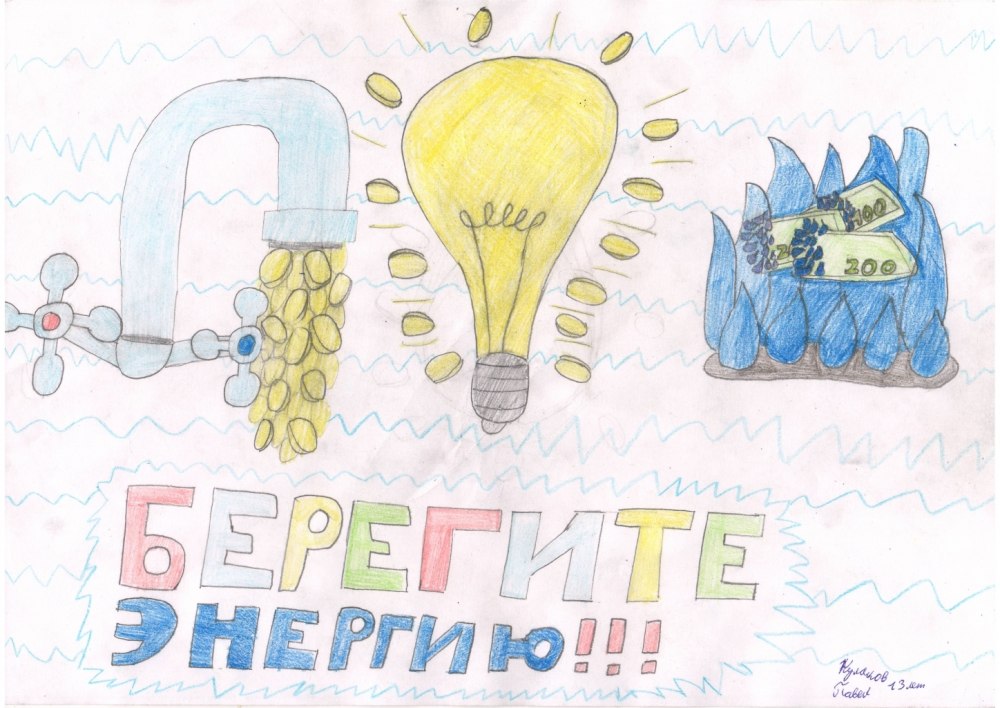 100
200
БЕРЕГИТЕ
ЭНЕРГИЮ!!!
Кулаков
Павел 13 лет